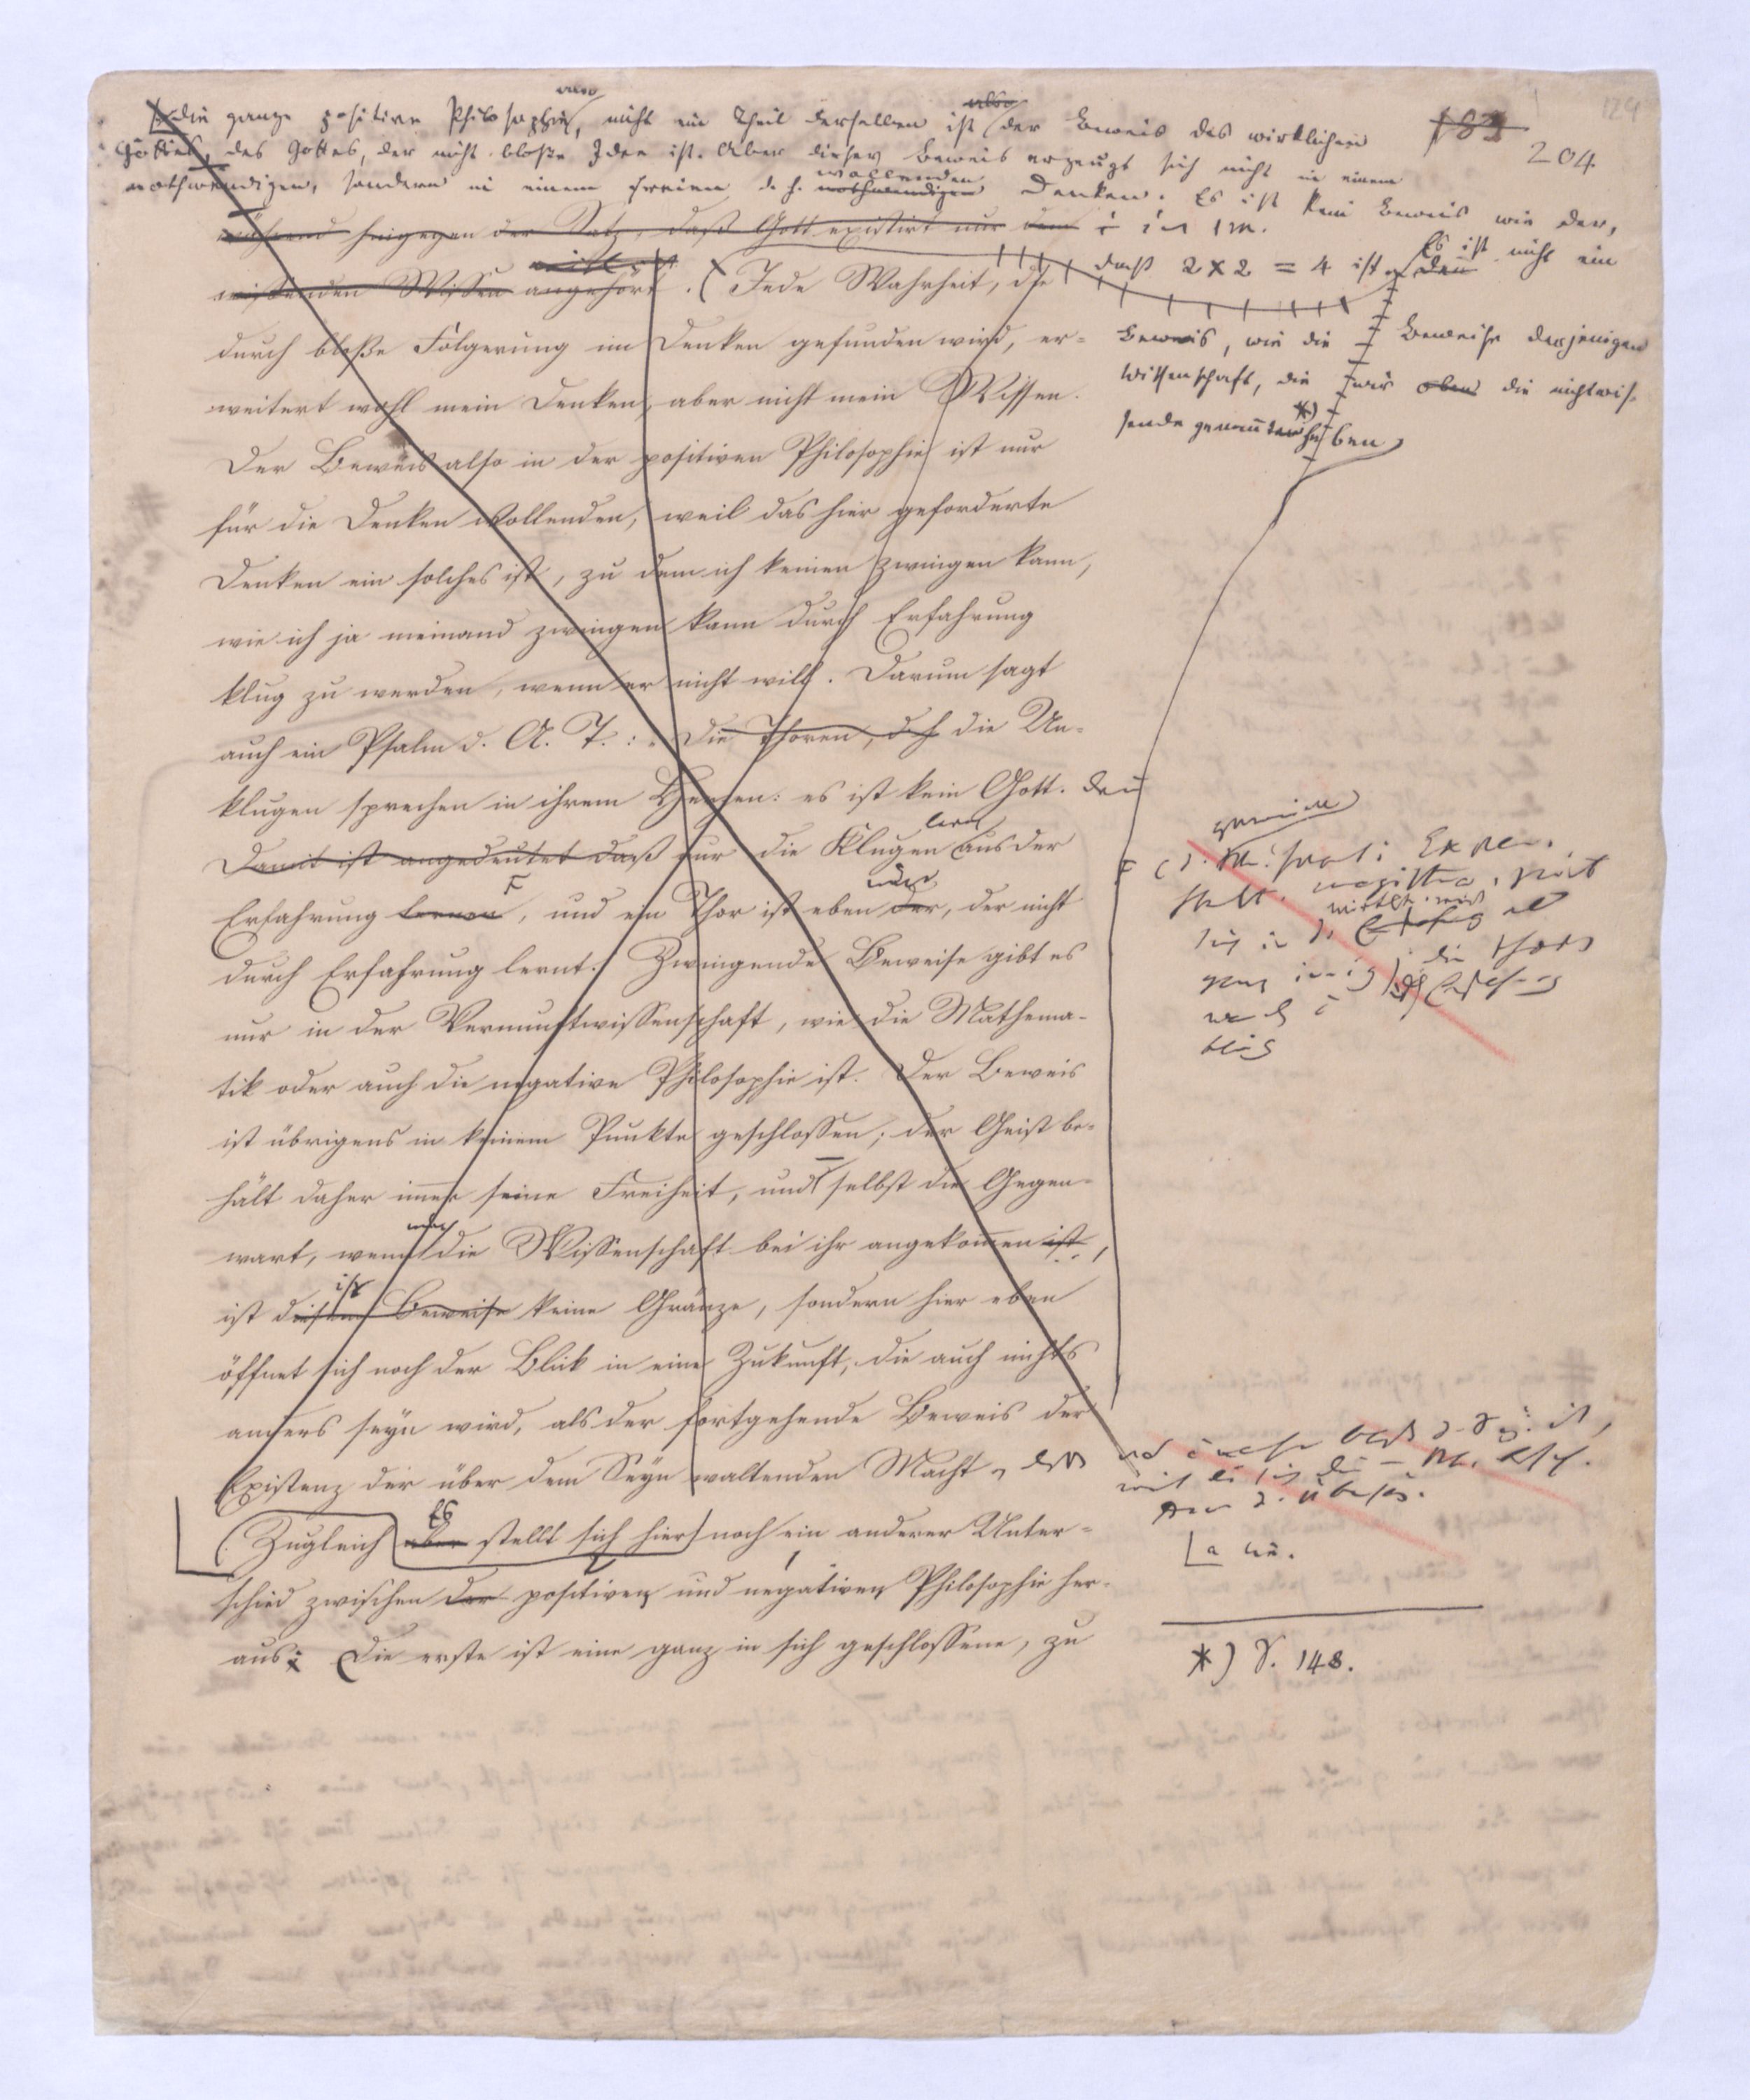 124
183
204.
also
also
die ganze positive Philosophie, nicht ein Theil derselben ist der Beweis des wirklichen
Gottes, des Gottes, der nicht bloße Idee ist. Aber dieser Beweis erzeugt sich nicht in einem
wollenden
nothwendigen, sondern in einem freien d. h. nothwendigen Denken. Es ist kein Beweis wie der,
während hingegen der Satz, daß Gott existirt nur dem
daß 2 x 2 = 4 ist. Es ist nicht ein
wissenden Wissen angehört. (Jede Wahrheit, die
durch bloße Folgerung im Denken gefunden wird, er-
Beweis, wie die Beweise derjenigen
weitert wohl mein Denken, aber nicht mein Wissen.
Wissenschaft, die wir oben die nichtwis-
sende genannt haben *)
Der Beweis also in der positiven Philosophie ist nur
für die Denken wollenden, weil das hier geforderte
Denken ein solches ist, zu dem ich keinen zwingen kann,
wie ich ja niemand zwingen kann durch Erfahrung
klug zu werden, wenn er nicht will. Darum sagt
auch ein Psalm d. A. T.: „Die Thoren, d. h. die Un-
klugen sprechen in ihrem Herzen: es ist kein Gott. denn
lernen
Damit ist angedeutet daß nur die Klugen aus der
nur
Erfahrung lernen, und ein Thor ist eben der, der nicht
durch Erfahrung lernt. Zwingende Beweise gibt es
nur in der Vernunftwissenschaft, wie die Mathema-
tik oder auch die negative Philosophie ist. Der Beweis
ist übrigens in keinem Punkte geschlossen; der Geist be-
hält daher immer seine Freiheit, und selbst die Gegen-
wart, wenn die Wissenschaft bei ihr angekommen ist,
ist
ist diesem Beweise keine Gränze, sondern hier eben
öffnet sich noch der Blick in eine Zukunft, die auch nichts
anders seyn wird, als der fortgehende Beweis der
Existenz der über dem Seyn waltenden Macht
Es
(Zugleich aber stellt sich hier noch ein anderer Unter-
schied zwischen der positiven und negativen Philosophie her-
aus: Die erste ist eine ganz in sich geschlossene, zu
*) S. 148.